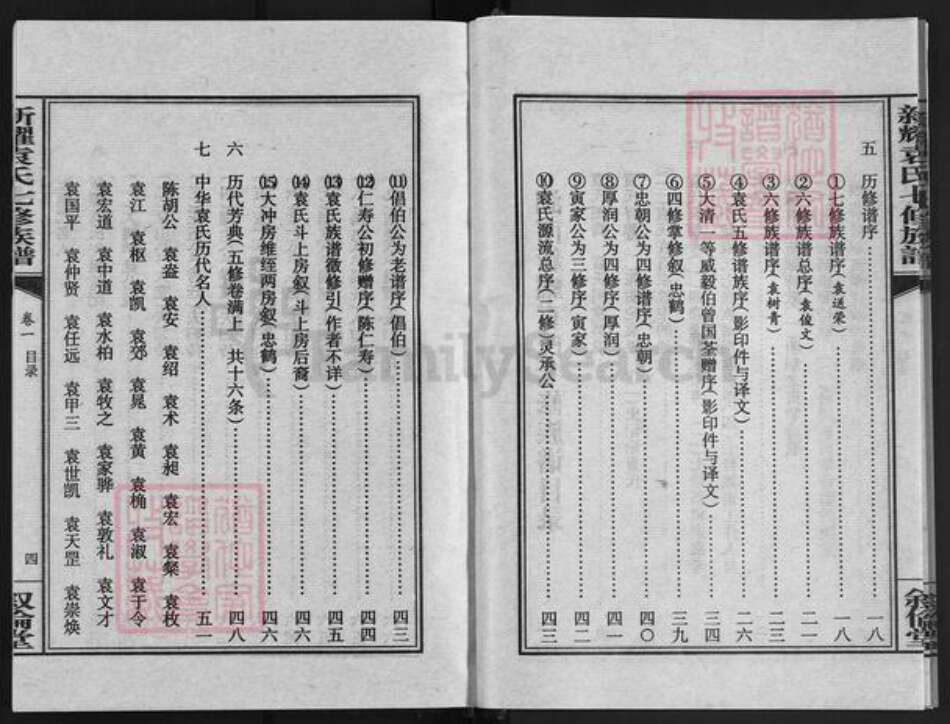 新耀袁氏七修族谱
五 历修谱序 一八
①七修族谱序(袁送荣) 一八
②六修族谱总序(袁俊文) 二一
③六修族谱序(袁树青) 二三
④袁氏五修谱族序(影印件与译文) 二六
⑤大清一等威毅伯曾国荃赠序(影印件与译文) 三四
⑥四修掌修叙(忠鹤) 三九
⑦忠朝公为四修谱序(忠朝) 四〇
⑧厚润公为四修序(厚润) 四一
⑨寅家公为三修序(寅家) 四二
⑩袁氏源流总序(二修 灵承公) 四三
⑪倡伯公为老谱序(倡伯) 四三
⑫仁寿公初修赠序(陈仁寿) 四四
⑬袁氏族谱徵修引(作者不详) 四五
⑭袁氏斗上房叙(斗上房后裔) 四六
⑮大冲房维绖两房叙(忠鹤) 四六
六 历代芳典(五修卷满上 共十六条) 四八
七 中华袁氏历代名人 五一
陈胡公 袁盎 袁安 袁绍 袁术 袁昶 袁宏 袁粲 袁枚
袁江 袁枢 袁凯 袁郊 袁晁 袁黄 袁桷 袁淑 袁于令
袁宏道 袁中道 袁水柏 袁牧之 袁家骅 袁敦礼 袁文才
袁国平 袁仲贤 袁任远 袁甲三 袁世凯 袁天罡 袁崇焕
新耀袁氏七修族谱
卷一 目录
四
FamilySearch